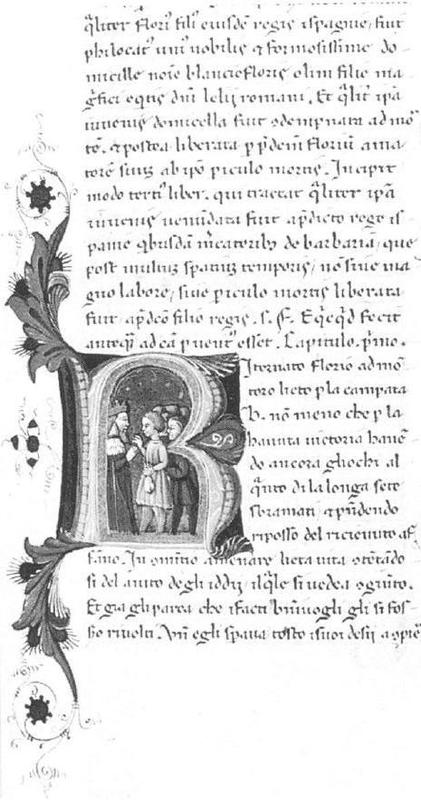 q̄liter Floriꝰ filiꝰ eiusdē regis ispagnie, fuit
philocatꝰ uniꝰ nobilis ⁊ formosissime do-
micille noīe blancieFloris olim filie ma-
g̃fici eq̄tis dn̄i lelij romani. Et q̄lit̾ ip̄a
iuvenis domicella fuit ꝯdempnata ad mo̅-
te̅. ⁊ postea liberata ꝑ p̄de̅m Floriu̅ ama-
tore̅ suuꝫ ab ip̄o ꝑiculo mortis. Incipit
modo tertiꝰ liber. qui tractat q̄liter ip̄a
iuvenis uenu̅data fuit ap̄dicto rege is-
panie q̄busda̅ m̾catoribꝫ de barbaria̅, que
post multuꝫ spatiuꝫ temporis, no̅ sine ma-
gno labore, siue ꝑiculo mortis liberata
fuit ap̄dc̅o filio regis. s. F. Eq̄eq̄d fecit
anteq̄ꝫ ad ea̅ ꝑuentꝰ esset. Capitulo. p̾mo.
Ritornato Florio ad mo̅-
toro lieto ꝑ la campata
B. no̅ meno che ꝑ la
hauuta uictoria haue̅-
do ancora gliochi al
q̄nto di la longa sete
sbramati, ⁊ pn̄dendo
riposso del riceuuto af-
fano. In comi̅cio amenare lieta uita ꝯte̅ta̅do
si del aiuto degli iddij, ilq̄le si uedea ꝯgiu̅to.
Et gia gli parea che ifacti bini̅uogli gli si fos-
sero riuolti. Un̅ egli sp̄aua tosto isuoi desij acꝯpie̅